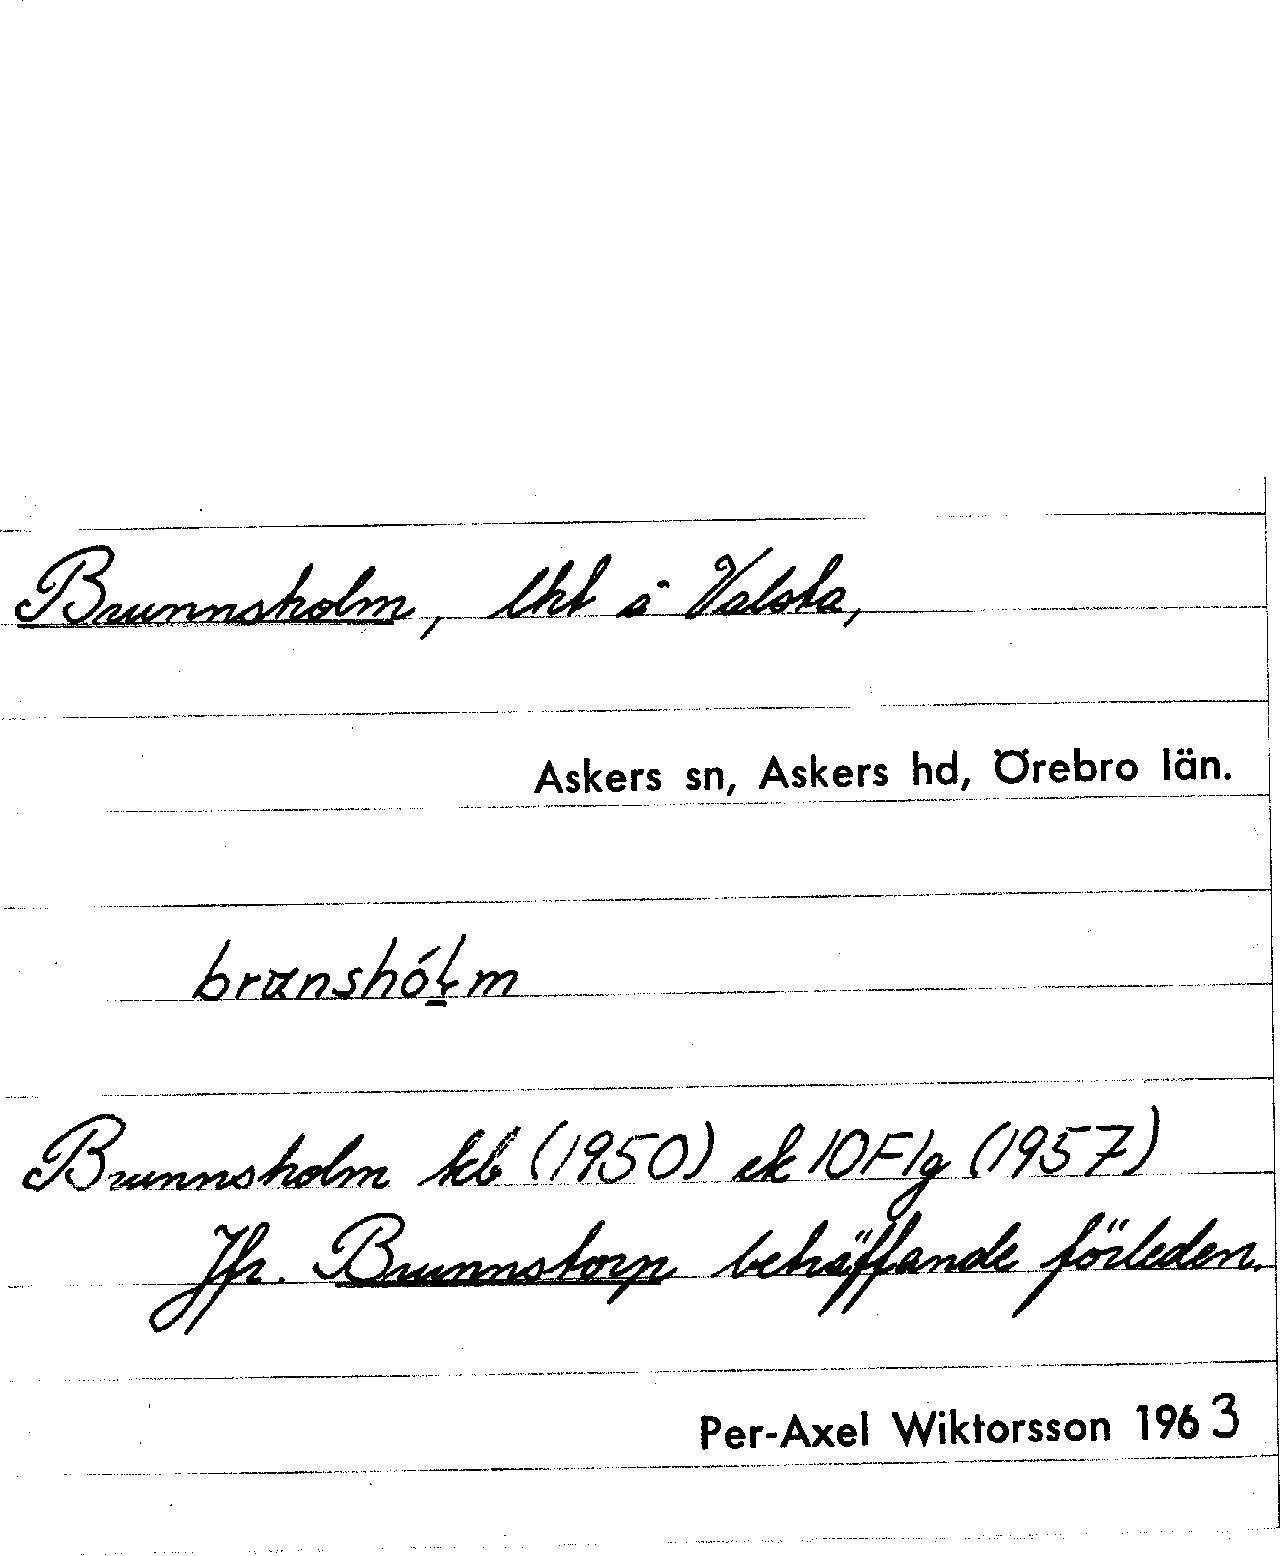 Brunnsholm, lht å Valsta,
Askers sn, Askers hd, Örebro län.
Brunnsholm kb (1950) ek 10F1g (1957)
Jfr. Brunnstorp beträffande förleden.
Per-Axel Wiktorsson 1963